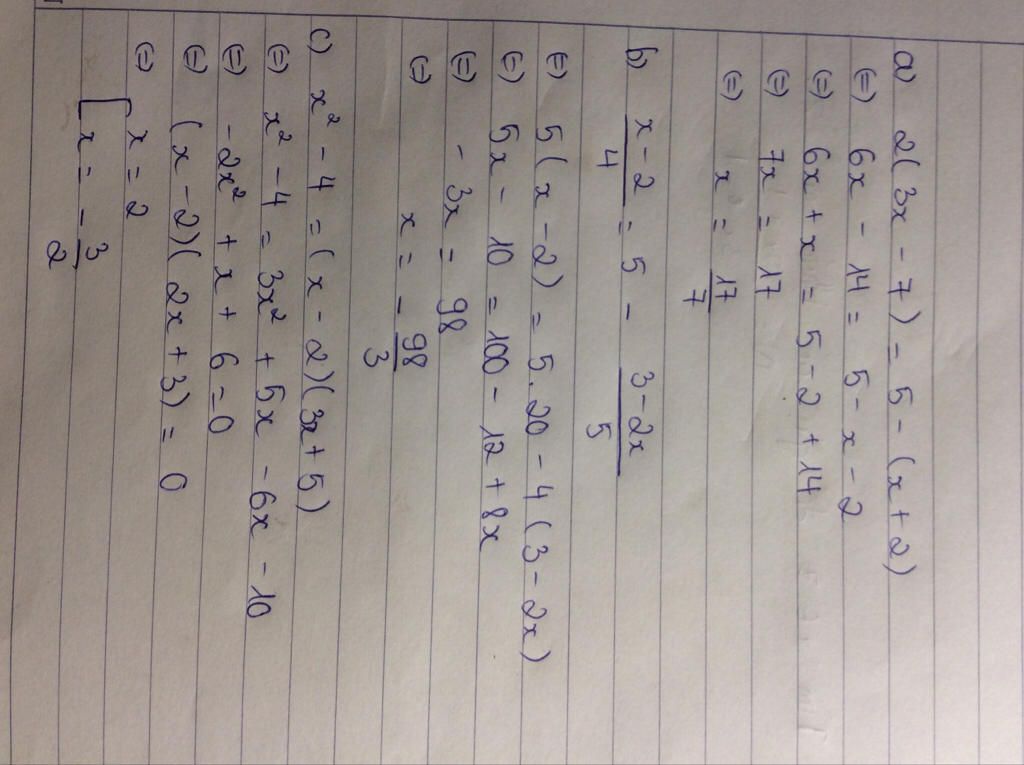 a) 2(3x - 7) = 5 - (x + 2)
(=) 6x - 14 = 5 - x - 2
(=) 6x + x = 5 - 2 + 14
(=) 7x = 17
(=) x = 17/7
b) (x - 2)/4 = 5 - (3 - 2x)/5
(=) 5(x - 2) = 5.20 - 4(3 - 2x)
(=) 5x - 10 = 100 - 12 + 8x
(=) - 3x = 98
(=) x = - 98/3
c) x² - 4 = (x - 2)(3x + 5)
(=) x² - 4 = 3x² + 5x - 6x - 10
(=) -2x² + x + 6 = 0
(=) (x - 2)(2x + 3) = 0
(=) [ x = 2
x = - 3/2